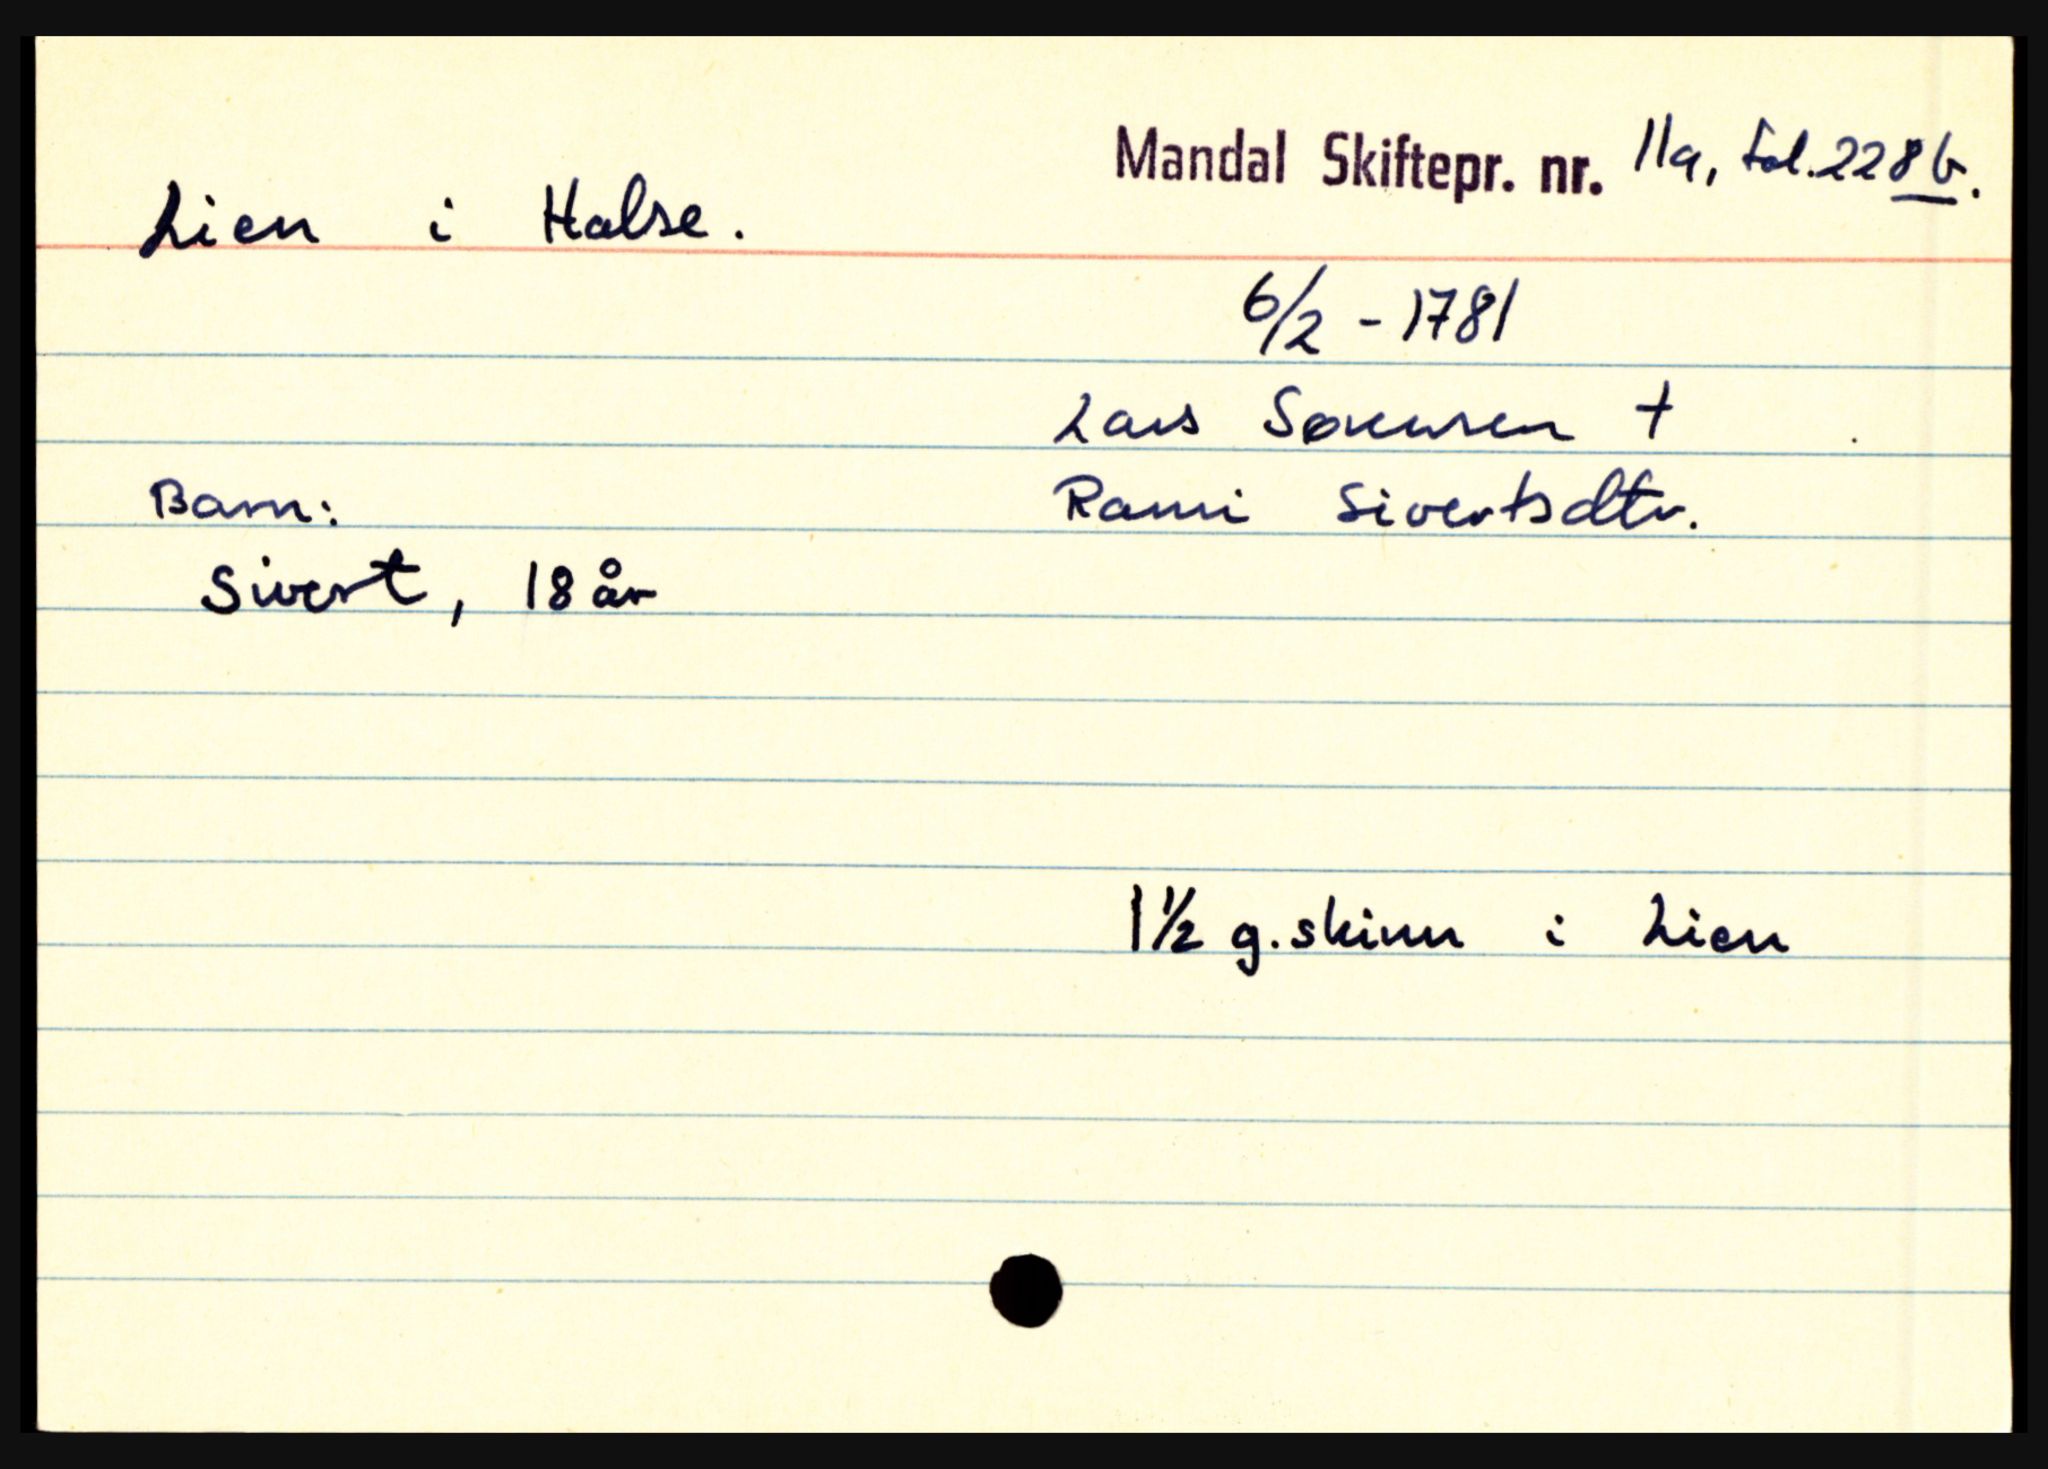 Mandal Skiftepr. nr. 11a, fol. 228b.
Lien i Halse.
6/2 - 1781
Lars Sørensen †
Barn: Rami Sivertsdtr.
Sivert, 18 år
1 1/2 g. skinn i Lien